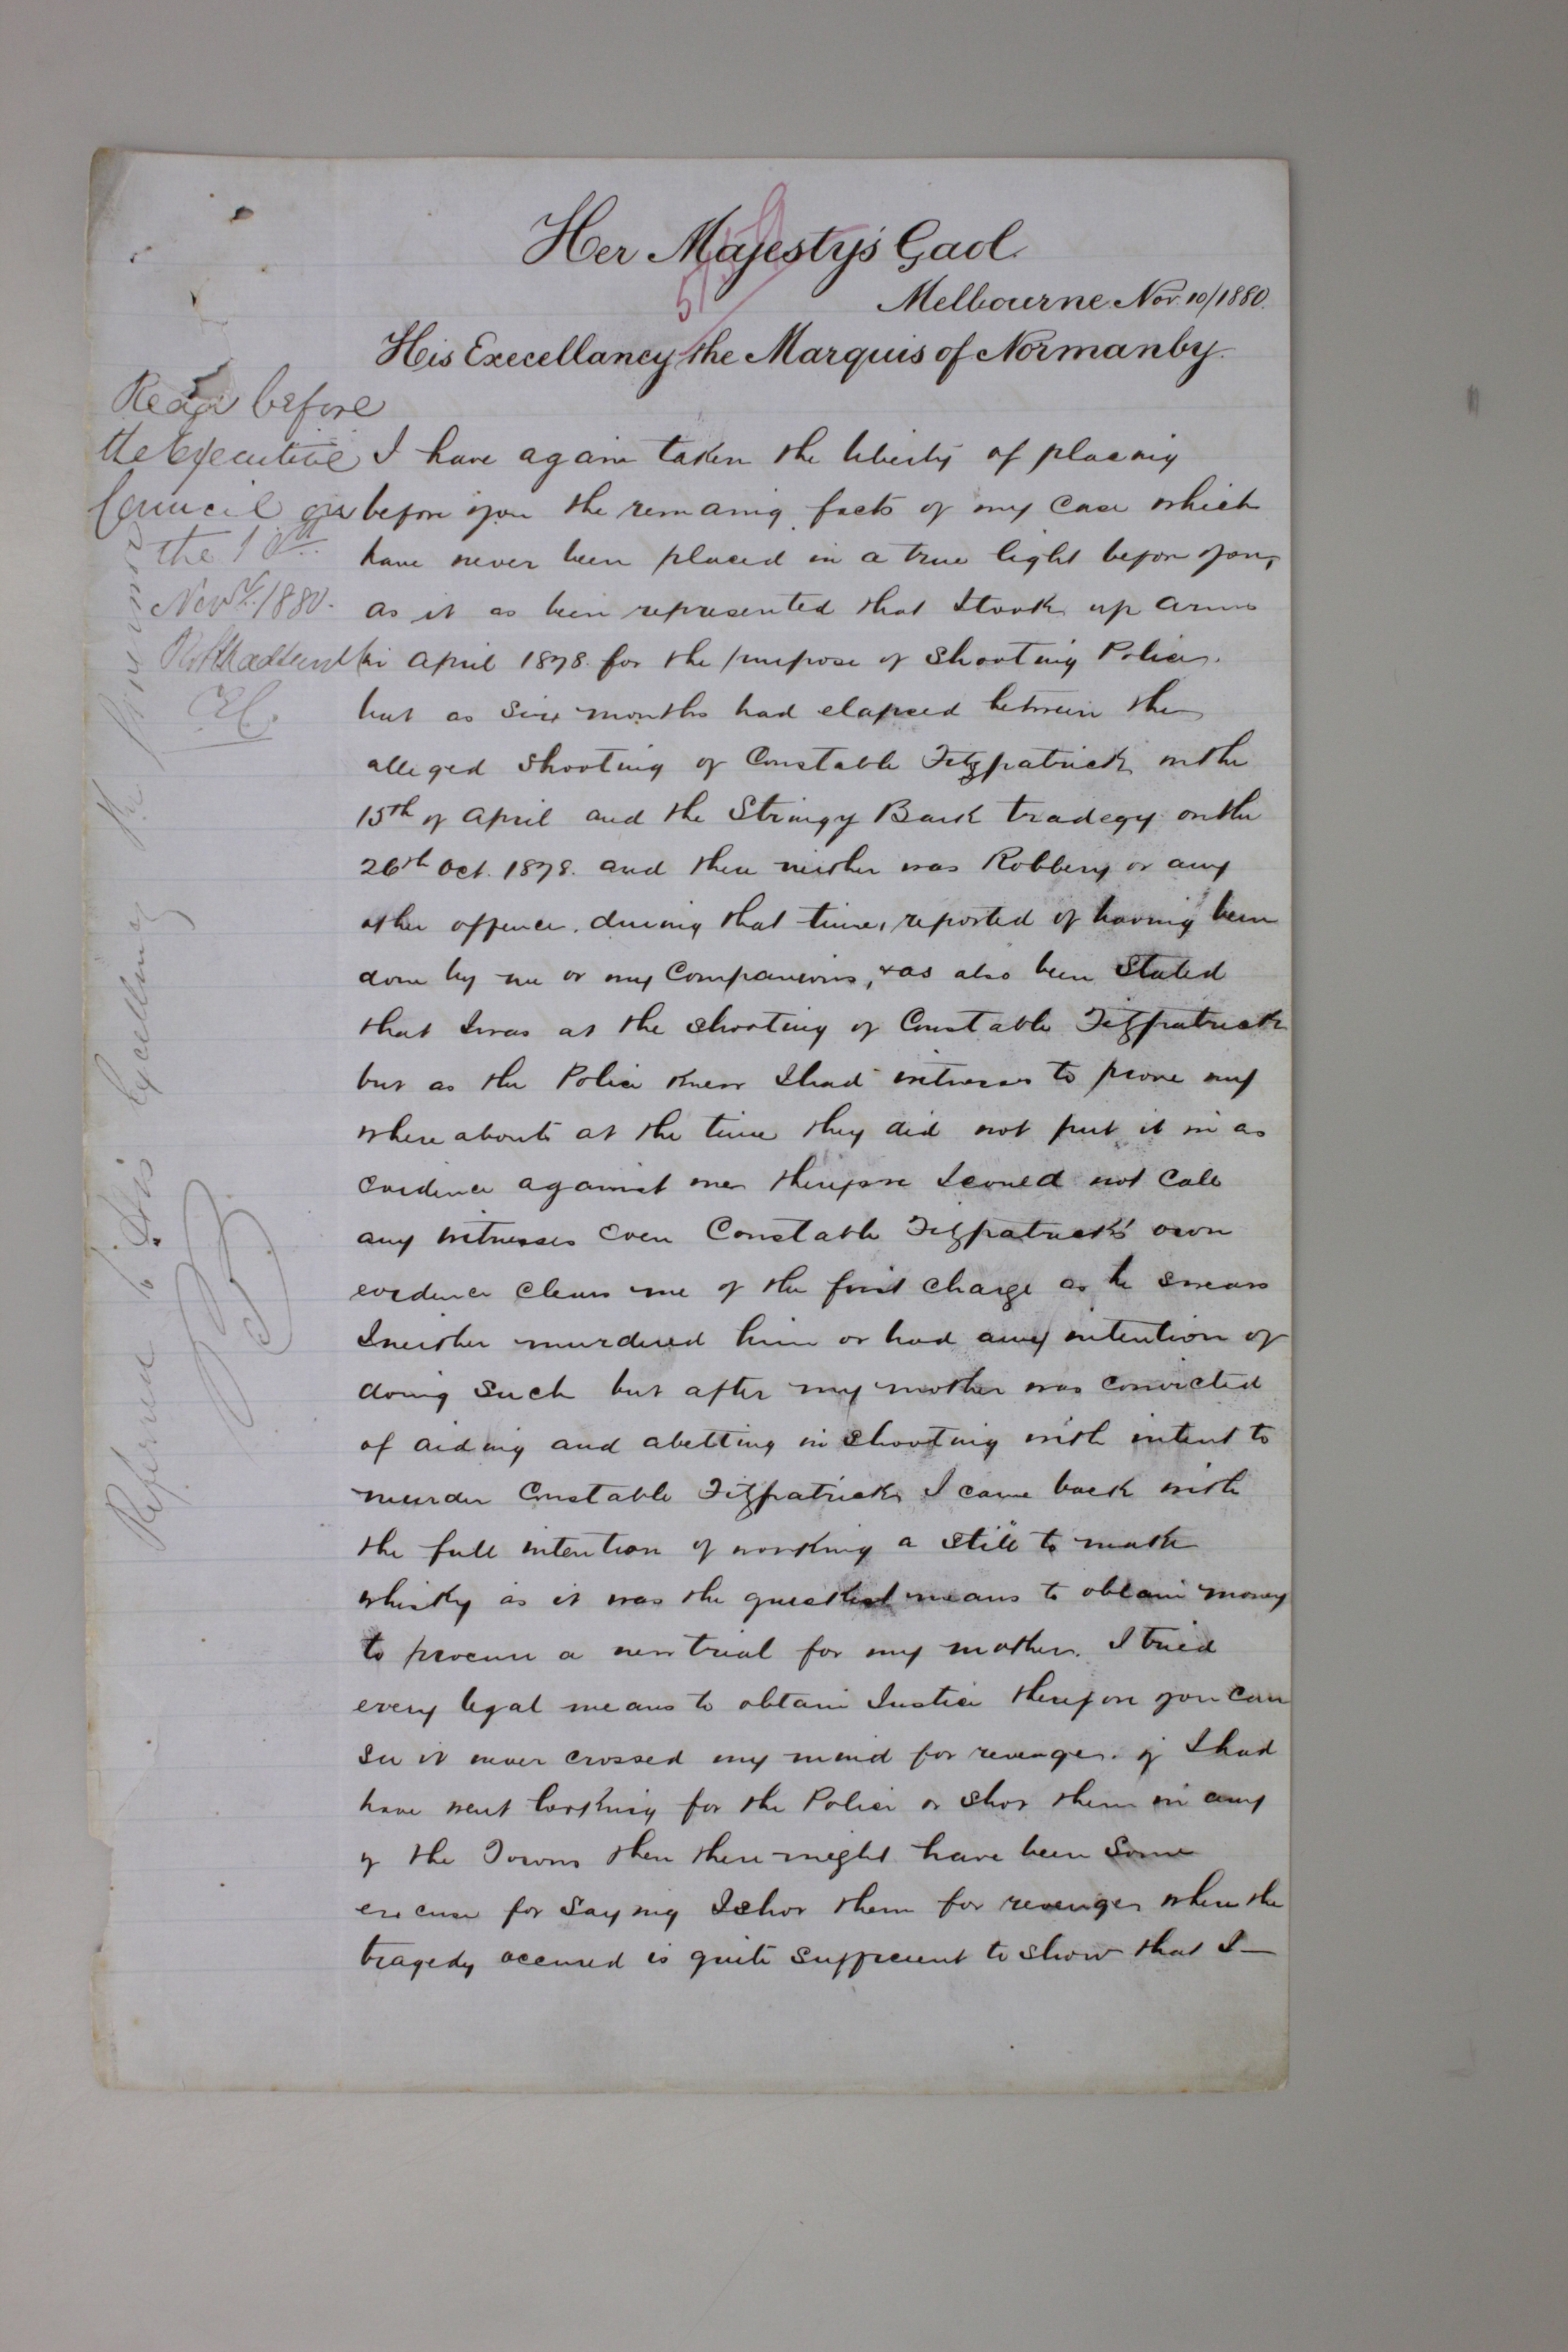 Her Majesty's Gaol.
Melbourne Nov. 10/1880.
His Execellancy the Marquis of Normanby.
Read before
the Executive
Council on
the 10th
Novr./1880.
E.C.
Referred to His Excellency the Governor
I have again taken the liberty of placing
before you the remaing facts of my case which
have never been placed in a true light before you,
as it as been represented that I took up arms
in April 1878. for the purpose of shooting Police.
but as six months had elapced between the
alleged shooting of Constable Fitzpatrick on the
15th of april and the Stringy Bark tradegy on the
26th Oct. 1878. and there neither was Robbery or any
other offence. during that time, reported of having been
done by me or my Companions, & as also been Stated
that I was at the shooting of Constable Fitzpatrick
but as the Police knew I had witnesses to prove my
whereabouts at the time they did not put it in as
evidence against me therefore I could not Call
any witnesses even Constable Fitzpatrick's own
evidence clears me of the first charge as he swears
I neither murdered him or had any intention of
doing Such but after my mother was convicted
of aiding and abetting in shooting with intent to
murder Constable Fitzpatrick I came back with
the full intention of working a still to make
whisky as it was the quickest means to obtain money
to procure a new trial for my mother. I tried
every legal means to obtain Justice therefore you can
see it never crossed my mind for revenge. if I had
have went looking for the Police or shot them in any
of the Towns then there might have been some
excuse for saying I shot them for revenge where the
tragedy occured is quite sufficient to show that I—